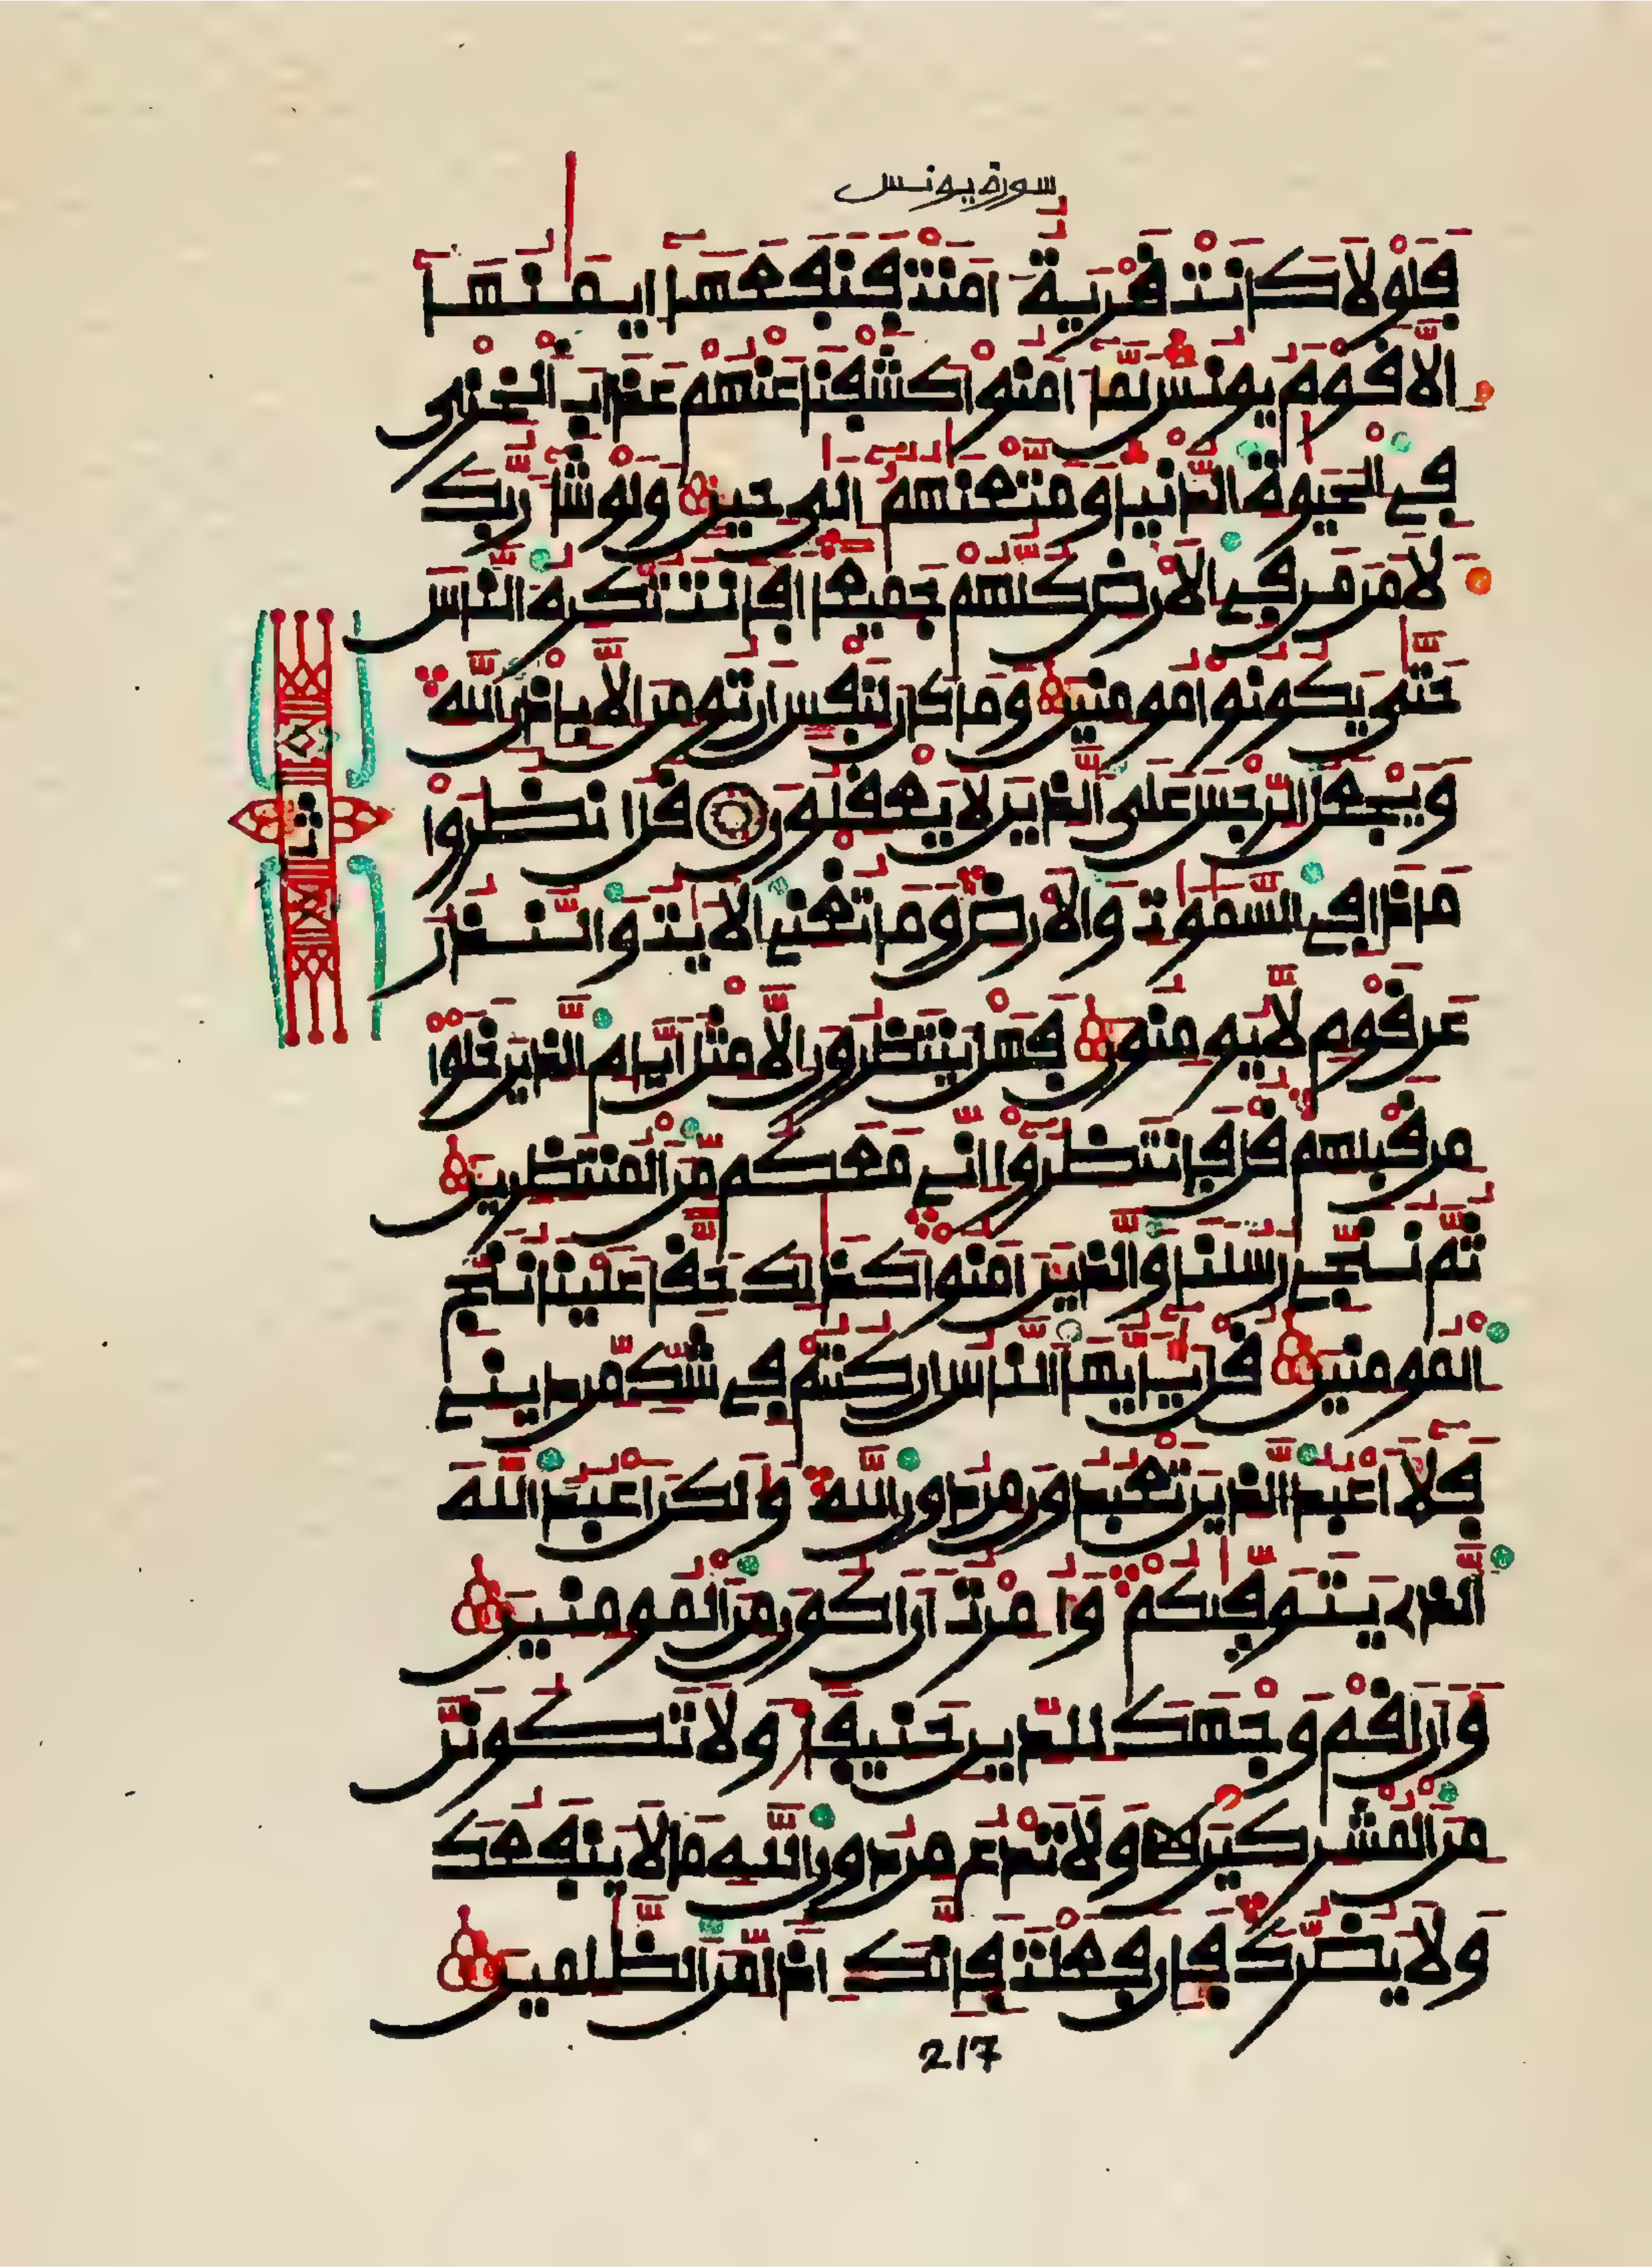 سورة يونس
فلولا كانت قرية امنت فنفعها ايمنها
الا قوم يونس لما امنوا كشفنا عنهم عذاب الخزي
في الحيوة الدنيا ومتعنهم الى حين ولو شا ربك
لامن من في الارض كلهم جميعا افانت تكره الناس
حتى يكونوا مومنين وما كان لنفس ان تومن الا باذن الله
ويجعل الرجس على الذين لا يعقلون قل انظروا
ماذا في السموت والارض وما تغني الايت والنذر
عن قوم لا يومنون فهل ينتظرون الا مثل ايام الذين خلوا
من قبلهم قل فانتظروا اني معكم من المنتظرين
ثم ننجي رسلنا والذين امنوا كذلك حقا علينا ننج
المومنين قل يايها الناس ان كنتم في شك من ديني
فلا اعبد الذين تعبدون من دون الله ولكن اعبد الله
الذي يتوفىكم وامرت ان اكون من المومنين
وان اقم وجهك للدين حنيفا ولا تكونن
من المشركين ولا تدع من دون الله ما لا ينفعك
ولا يضرك فان فعلت فانك اذا من الظلمين
217